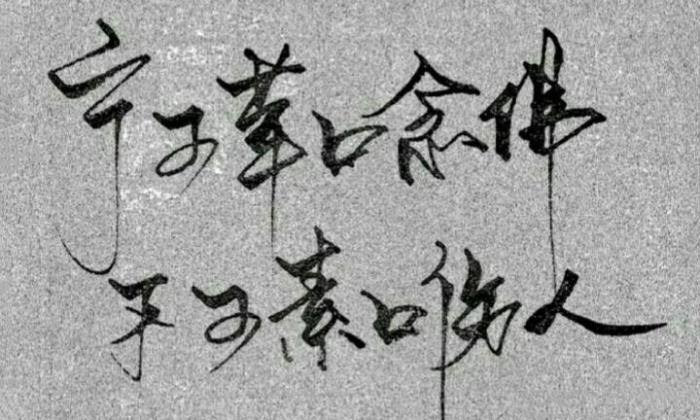 宁可荤口念佛
不可素口伤人